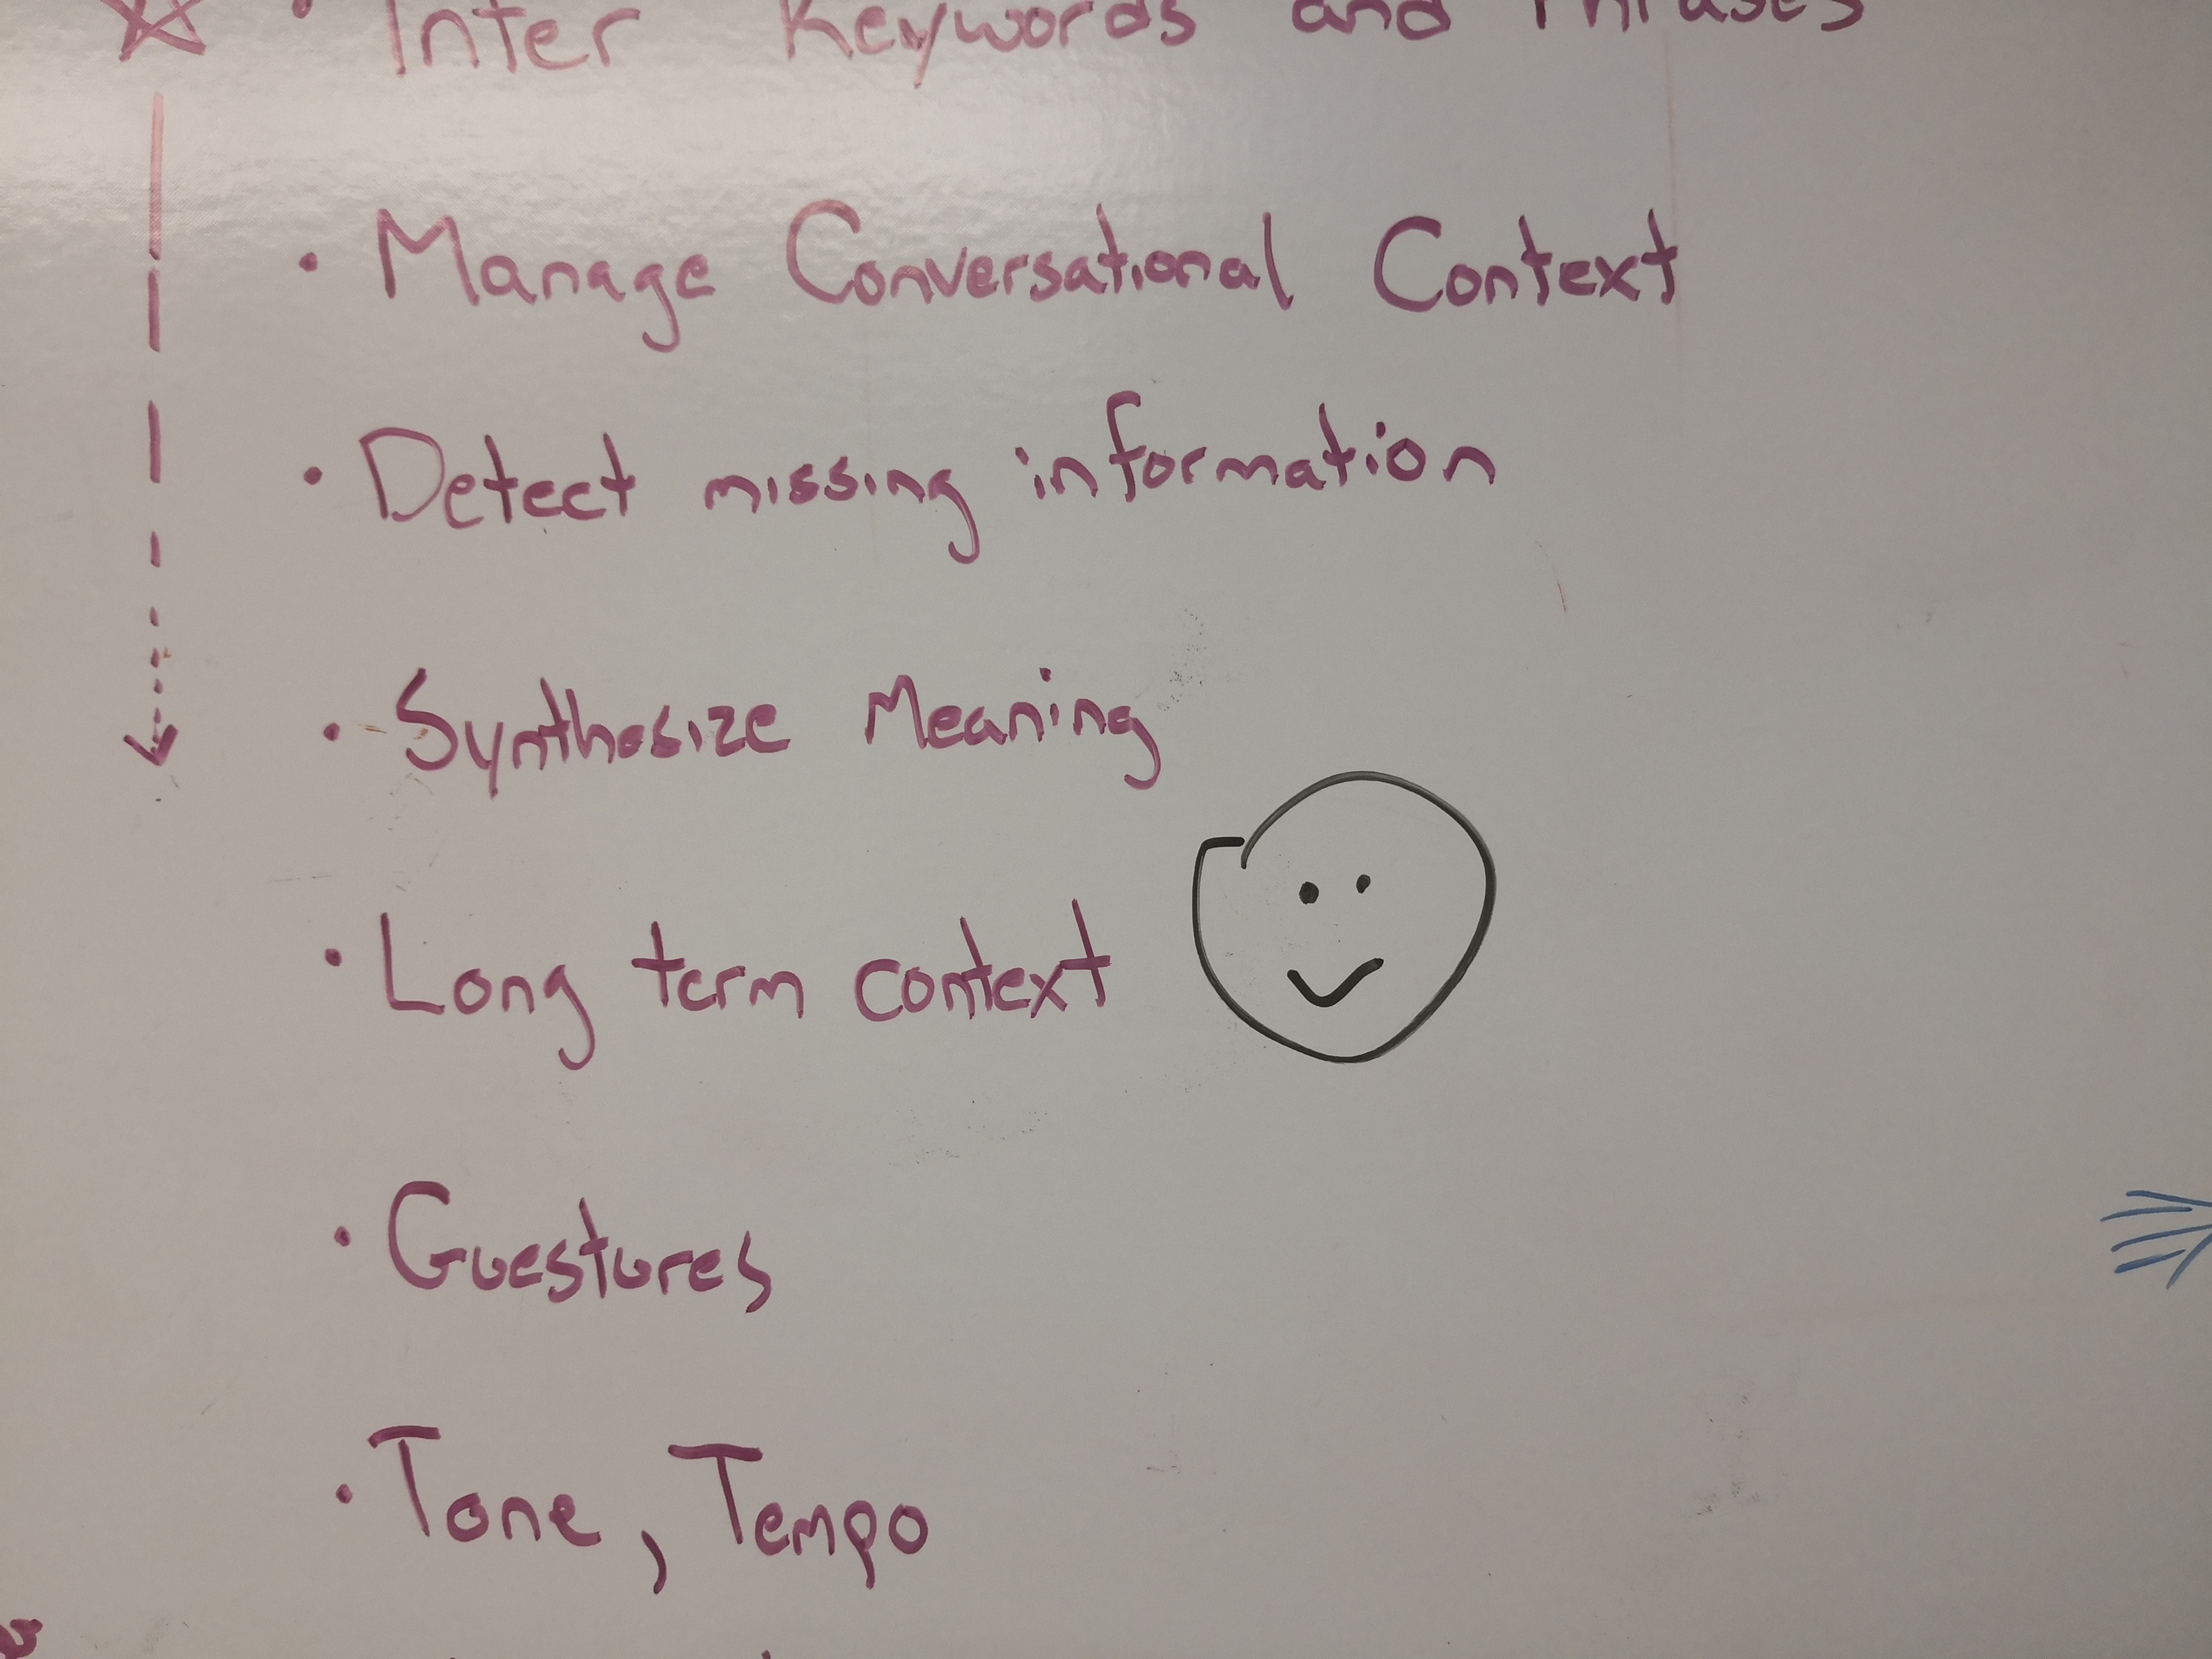 • Inter Keywords and Phrases
• Manage Conversational Context
• Detect missing information
• Synthesize Meaning
• Long term context
• Guestures
• Tone, Tempo